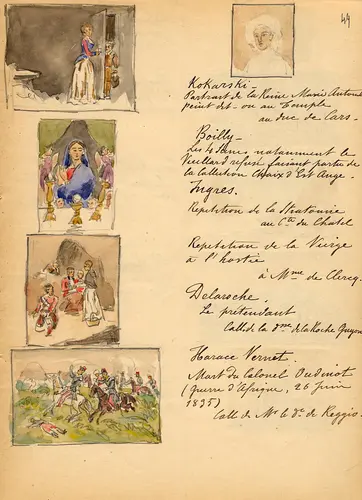 44
Kokarski-
Portrait de la Reine Marie Antoine
peint dit-on au Temple
au duc de Cars-
Boilly-
Les notamment le
Vieillard refusé faisant partie de
la Collection Chaix d'Est Ange-
Ingres.
Repetition de la Stratonice
au Cte du Chatel
Repetition de la Vierge
à l'hostie
à Mme de Clercq.
Delaroche.
Le prétendant
Coll. de la de la Roche Guyon
Horace Vernet.
Mort du Colonel Oudinot
(guerre d'Afrique, 26 Juin
1835)
Coll. de Mr le Dc de Reggio-